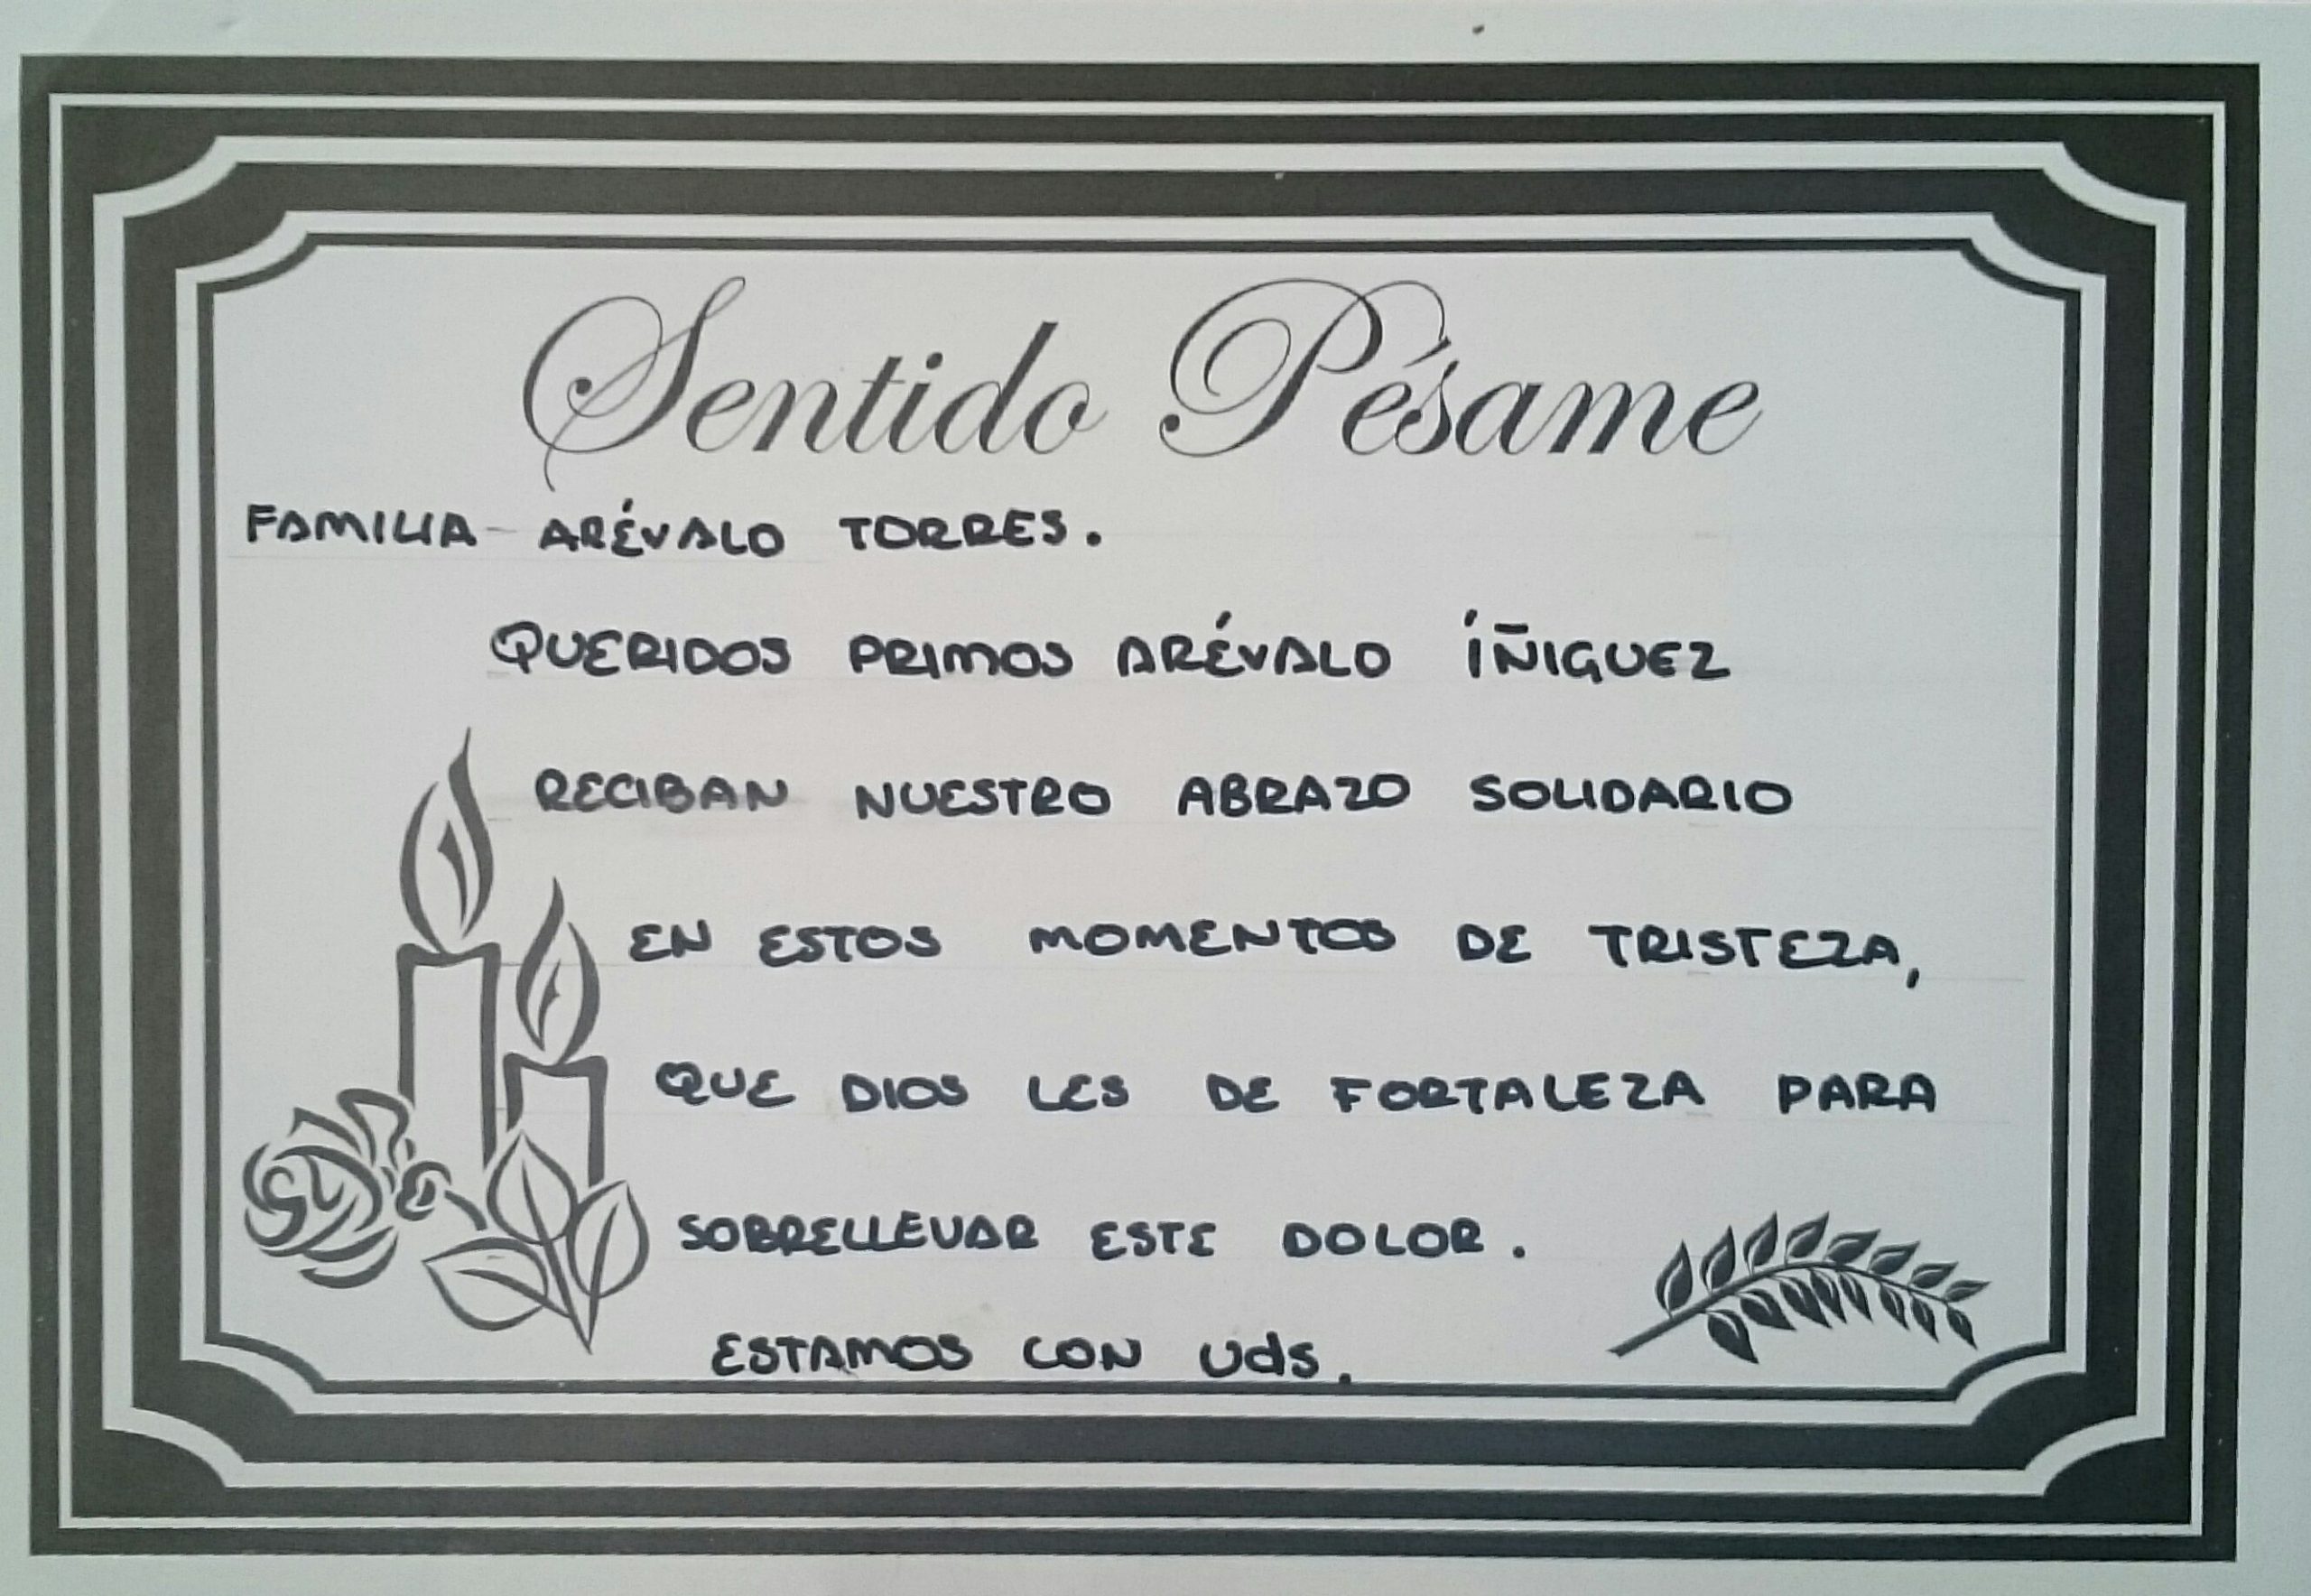 Sentido Pésame
FAMILIA - ARÉVALO TORRES.
QUERIDOS PRIMOS ARÉVALO ÍÑIGUEZ
RECIBAN NUESTRO ABRAZO SOLIDARIO
EN ESTOS MOMENTOS DE TRISTEZA,
QUE DIOS LES DE FORTALEZA PARA
SOBRELLEVAR ESTE DOLOR.
ESTAMOS CON Uds.